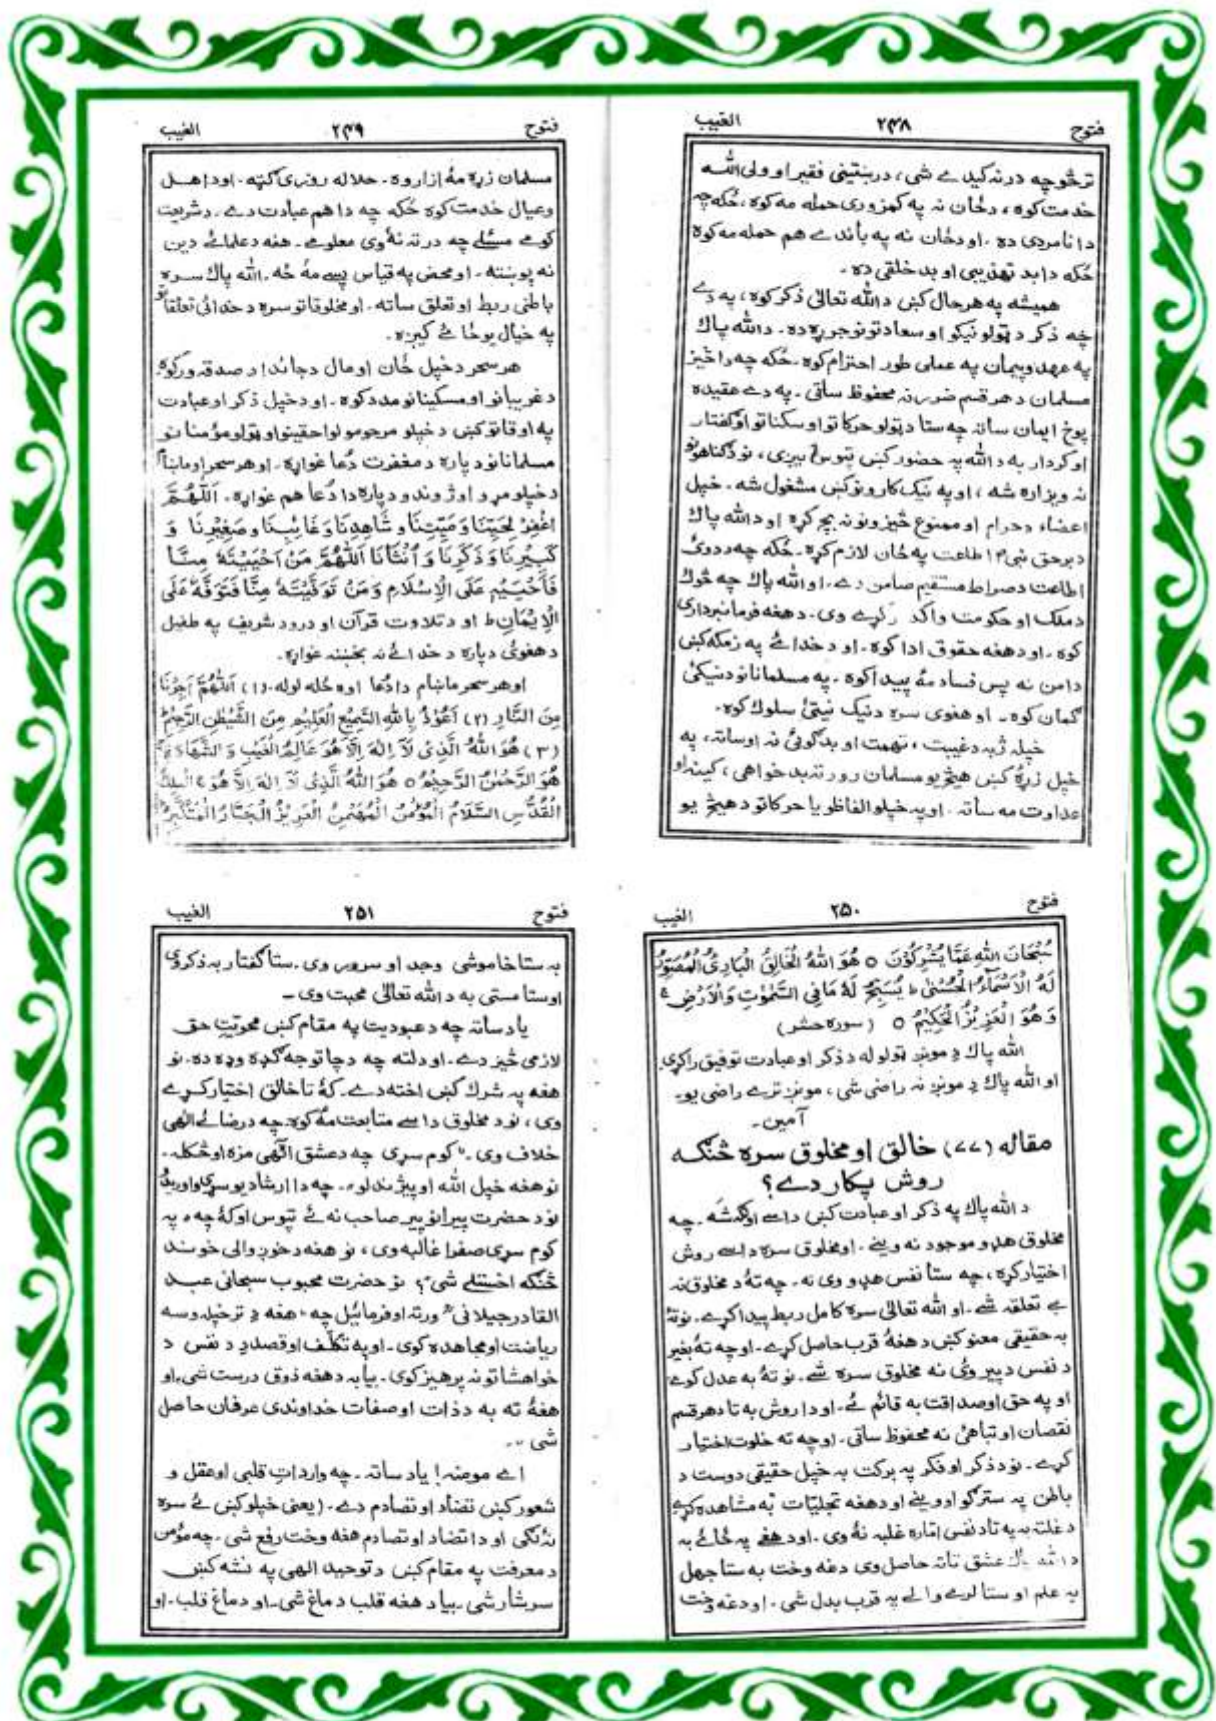 فتوح ۲۴۸ الغیب
ترڅو چه درنه کیدے شی، دربنتینی فقیر او ولی الله
خدمت کوه، دځان نه په کمزوری حمله مه کوه، ځکه چه
دا نامردی ده ۔ او دځان نه په باندے هم حمله مه کوه
ځکه دا بد تهذیبی او بد خلقی ده ۔
همیشه په هرحال کښ دالله تعالیٰ ذکر کوه، په دے
چه ذکر د ټولو نیکو او سعادتونو جرړه ده ۔ دالله پاك
په عهد وپیمان په عملی طور احترام کوه ۔ ځکه چه دا څیز
مسلمان د هر قسم ضرر نه محفوظ ساتی ۔ په دے عقیده
پوخ ایمان ساته چه ستا د ټولو حرکاتو او سکناتو او گفتار
او کردار به د الله په حضور کښ تپوس کیږی، نو دگناهونو
نه ویزاره شه، او په نیک کارونو کښ مشغول شه ۔ خپل
اعضاء د حرام او ممنوع څیزونو نه بچ کړه او دالله پاك
د برحق نبیؐ اطاعت په ځان لازم کړه ۔ ځکه چه ددوی
اطاعت د صراط مستقیم ضامن دے ۔ او الله پاك چه څوك
د ملک او حکومت واکدار کړے وی ۔ دهغه فرمانبرداری
کوه ۔ او دهغه حقوق ادا کوه ۔ او د خدائے په زمکه کښ
دامن نه پس فساد مهٔ پیدا کوه ۔ په مسلمانانو د نیکئ
گمان کوه ۔ او هغوی سره د نیک نیتئ سلوك کوه ۔
خپله ژبه د غیبت، تهمت او بدگوئی نه اوساته، په
خپل زړهٔ کښ هیڅ یو مسلمان رور ته بد خواهی، کینه او
عداوت مه ساته ۔ او په خپلو الفاظو یا حرکاتو د هیڅ یو
فتوح ۲۴۹ الغیب
مسلمان زړه مهٔ ازاروه ۔ حلاله روزی گټه ۔ او داهل
وعیال خدمت کوه ځکه چه دا هم عبادت دے ۔ د شریعت
کومے مسئلے چه درته نهٔ وی معلومے ۔ هغه د علمائے دین
نه پوښته ۔ او محض په قیاس پسے مهٔ ځه ۔ الله پاك سره
باطنی ربط او تعلق ساته ۔ او مخلوقاتو سره د خدائی تعلقاتو
په خیال یو ځائے کیږه ۔
هر سحر د خپل ځان او مال د جائداد صدقه ورکوه
د غریبانو او مسکینانو مدد کوه ۔ او د خپل ذکر او عبادت
په اوقاتو کښ د خپلو مرحومو لواحقینو او ټولو مؤمنانو
مسلمانانو دپاره د مغفرت دُعا غواړه ۔ او هر سحر او ماښام
د خپلو مړو او ژوندو دپاره دا دُعا هم غواړه ۔ اَللّٰهُمَّ
اغْفِرْ لِحَيِّنَا وَمَيِّتِنَا وَشَاهِدِنَا وَغَائِبِنَا وَصَغِيْرِنَا وَ
كَبِيْرِنَا وَذَكَرِنَا وَاُنْثَانَا اَللّٰهُمَّ مَنْ اَحْيَيْتَهٗ مِنَّا
فَاَحْيِيْهِ عَلَى الْاِسْلَامِ وَمَنْ تَوَفَّيْتَهٗ مِنَّا فَتَوَفَّهٗ عَلَى
الْاِيْمَانِ ط او د تلاوت قرآن او درود شریف په طفیل
د هغوئ دپاره د خدائے نه بخښنه غواړه ۔
او هر سحر ماښام دا دُعا اوه ځله لوله ۔ (۱) اَللّٰهُمَّ اَجِرْنَا
مِنَ النَّارِ (۲) اَعُوْذُ بِاللّٰهِ السَّمِيْعِ الْعَلِيْمِ مِنَ الشَّيْطٰنِ الرَّجِيْمِ
(۳) هُوَ اللّٰهُ الَّذِیْ لَآ اِلٰهَ اِلَّا هُوَ عَالِمُ الْغَيْبِ وَالشَّهَادَةِ
هُوَ الرَّحْمٰنُ الرَّحِيْمُ ○ هُوَ اللّٰهُ الَّذِیْ لَآ اِلٰهَ اِلَّا هُوَ ۚ اَلْمَلِكُ
الْقُدُّوْسُ السَّلَامُ الْمُؤْمِنُ الْمُهَيْمِنُ الْعَزِيْزُ الْجَبَّارُ الْمُتَكَبِّرُ
فتوح ۲۵۰ الغیب
سُبْحَانَ اللّٰهِ عَمَّا يُشْرِكُوْنَ ○ هُوَ اللّٰهُ الْخَالِقُ الْبَارِئُ الْمُصَوِّرُ
لَهُ الْاَسْمَآءُ الْحُسْنٰى ط يُسَبِّحُ لَهٗ مَا فِی السَّمٰوٰتِ وَالْاَرْضِ ۚ
وَهُوَ الْعَزِيْزُ الْحَكِيْمُ ○ (سوره حشر)
الله پاك دِ مونږ ټولو له د ذکر او عبادت توفیق راکړی
او الله پاك دِ مونږ نه راضی شی، مونږ ترے راضی یو ۔
آمین ۔
مقاله (۷۷) خالق او مخلوق سره څنگه
روش پکار دے؟
د الله پاك په ذکر او عبادت کښ داسے اوگډ شه ۔ چه
مخلوق هډو موجود نه وینے ۔ او مخلوق سره داسے روش
اختیار کړه، چه ستا نفس هډو وی نه ۔ چه تهٔ د مخلوق نه
بے تعلقه شے ۔ او الله تعالیٰ سره کامل ربط پیدا کړے ۔ نو تهٔ
به حقیقی معنو کښ دهغهٔ قرب حاصل کړے ۔ او چه تهٔ بغیر
د نفس د پیروئ نه مخلوق سره شے ۔ نو تهٔ به عدل کوے
او په حق او صداقت به قائم ئے ۔ او دا روش به تا د هر قسم
نقصان او تباهئ نه محفوظ ساتی ۔ او چه ته خلوت اختیار
کړے ۔ نو د ذکر او فکر په برکت به خپل حقیقی دوست د
باطن په سترگو اووینے او دهغه تجلیّات به مشاهده کړے
دغلته به په تا د نفس اماره غلبه نهٔ وی ۔ او دهغے په ځائے به
د الله پاك عشق تا ته حاصل وی دغه وخت به ستا جهل
په علم او ستا لرے والے په قرب بدل شی ۔ او دغه وخت
فتوح ۲۵۱ الغیب
به ستا خاموشی وجد او سرور وی ۔ ستا گفتار به ذکر وی
او ستا مستی به د الله تعالیٰ محبت وی ۔
یاد ساته چه د عبودیت په مقام کښ محویّتِ حق
لازمی څیز دے ۔ او دلته چه د چا توجه گډه وډه ده ۔ نو
هغه په شرك کښ اخته دے ۔ کهٔ تا خالق اختیار کړے
وی، نو د مخلوق داسے متابعت مهٔ کوه چه د رضائے الٰهی
خلاف وی ۔ "کوم سړی چه د عشق الٰهی مزه اوڅکله ۔
نو هغه خپل الله اوپیژندلو ۔" چه دا ارشاد یو سړی واورید
نو د حضرت پیرانو پیر صاحب نه ئے تپوس اوکهٔ چه "په
کوم سړی صفرا غالبه وی، نو هغه د خوږ والی خوند
څنگه اخستلے شی"؟ نو حضرت محبوب سبحانی عبد
القادر جیلانیؒ ورته اوفرمائیل چه "هغه دِ تر خپله وسه
ریاضت او مجاهده کوی ۔ او په تکلّف او قصد دِ د نفس د
خواهشاتو نه پرهیز کوی ۔ بیا به دهغه ذوق درست شی، او
هغهٔ ته به د ذات او صفات خداوندی عرفان حاصل
شی"۔
اے مومنه! یاد ساته ۔ چه وارداتِ قلبی او عقل و
شعور کښ تضاد او تصادم دے ۔ (یعنی خپلو کښ ئے سره
نهٔ لگی او دا تضاد او تصادم هغه وخت رفع شی ۔ چه مؤمن
د معرفت په مقام کښ د توحید الٰهی په نشه کښ
سرشار شی ۔ بیا د هغه قلب دماغ شی ۔ او دماغ قلب ۔ او